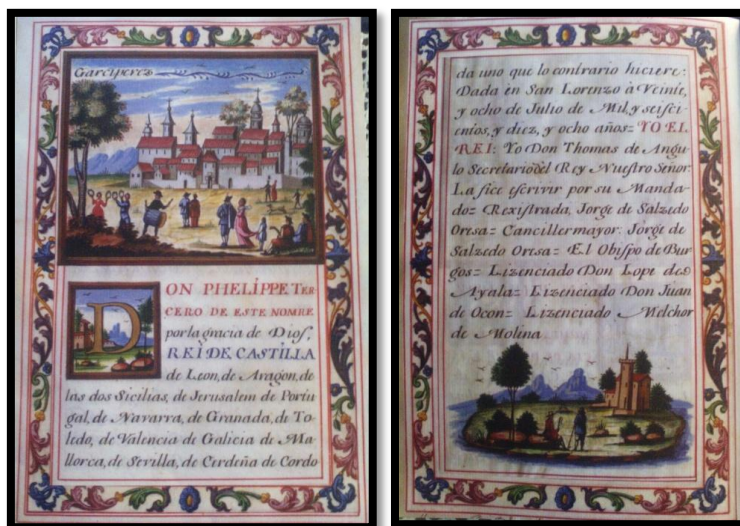 Garciperez
DON PHELIPPE TER
CERO DE ESTE NOMBRE
por la gracia de Dios,
REI DE CASTILLA
de Leon, de Aragon, de
las dos Sicilias, de Jerusalem de Portu
gal, de Navarra, de Granada, de To-
ledo, de Valencia de Galicia de Ma-
llorca, de Sevilla, de Cerdeña de Cordo
da uno que lo contrario hiciere:
Dada en San Lorenzo à Veinte,
y ocho de Julio de Mil, y seisci-
entos, y diez, y ocho años= YO EL
REI: Yo Don Thomas de Angu
lo Secretario del Rey Nuestro Señor:
La fice escrivir por su Manda-
do= Rexistrada, Jorge de Salzedo
Oresa= Cancillermayor: Jorge de
Salzedo Oresa= El Obispo de Bur
gos= Lizenciado Don Lope de
Ayala= Lizenciado Don Juan
de Ocon= Lizenciado Melchor
de Molina